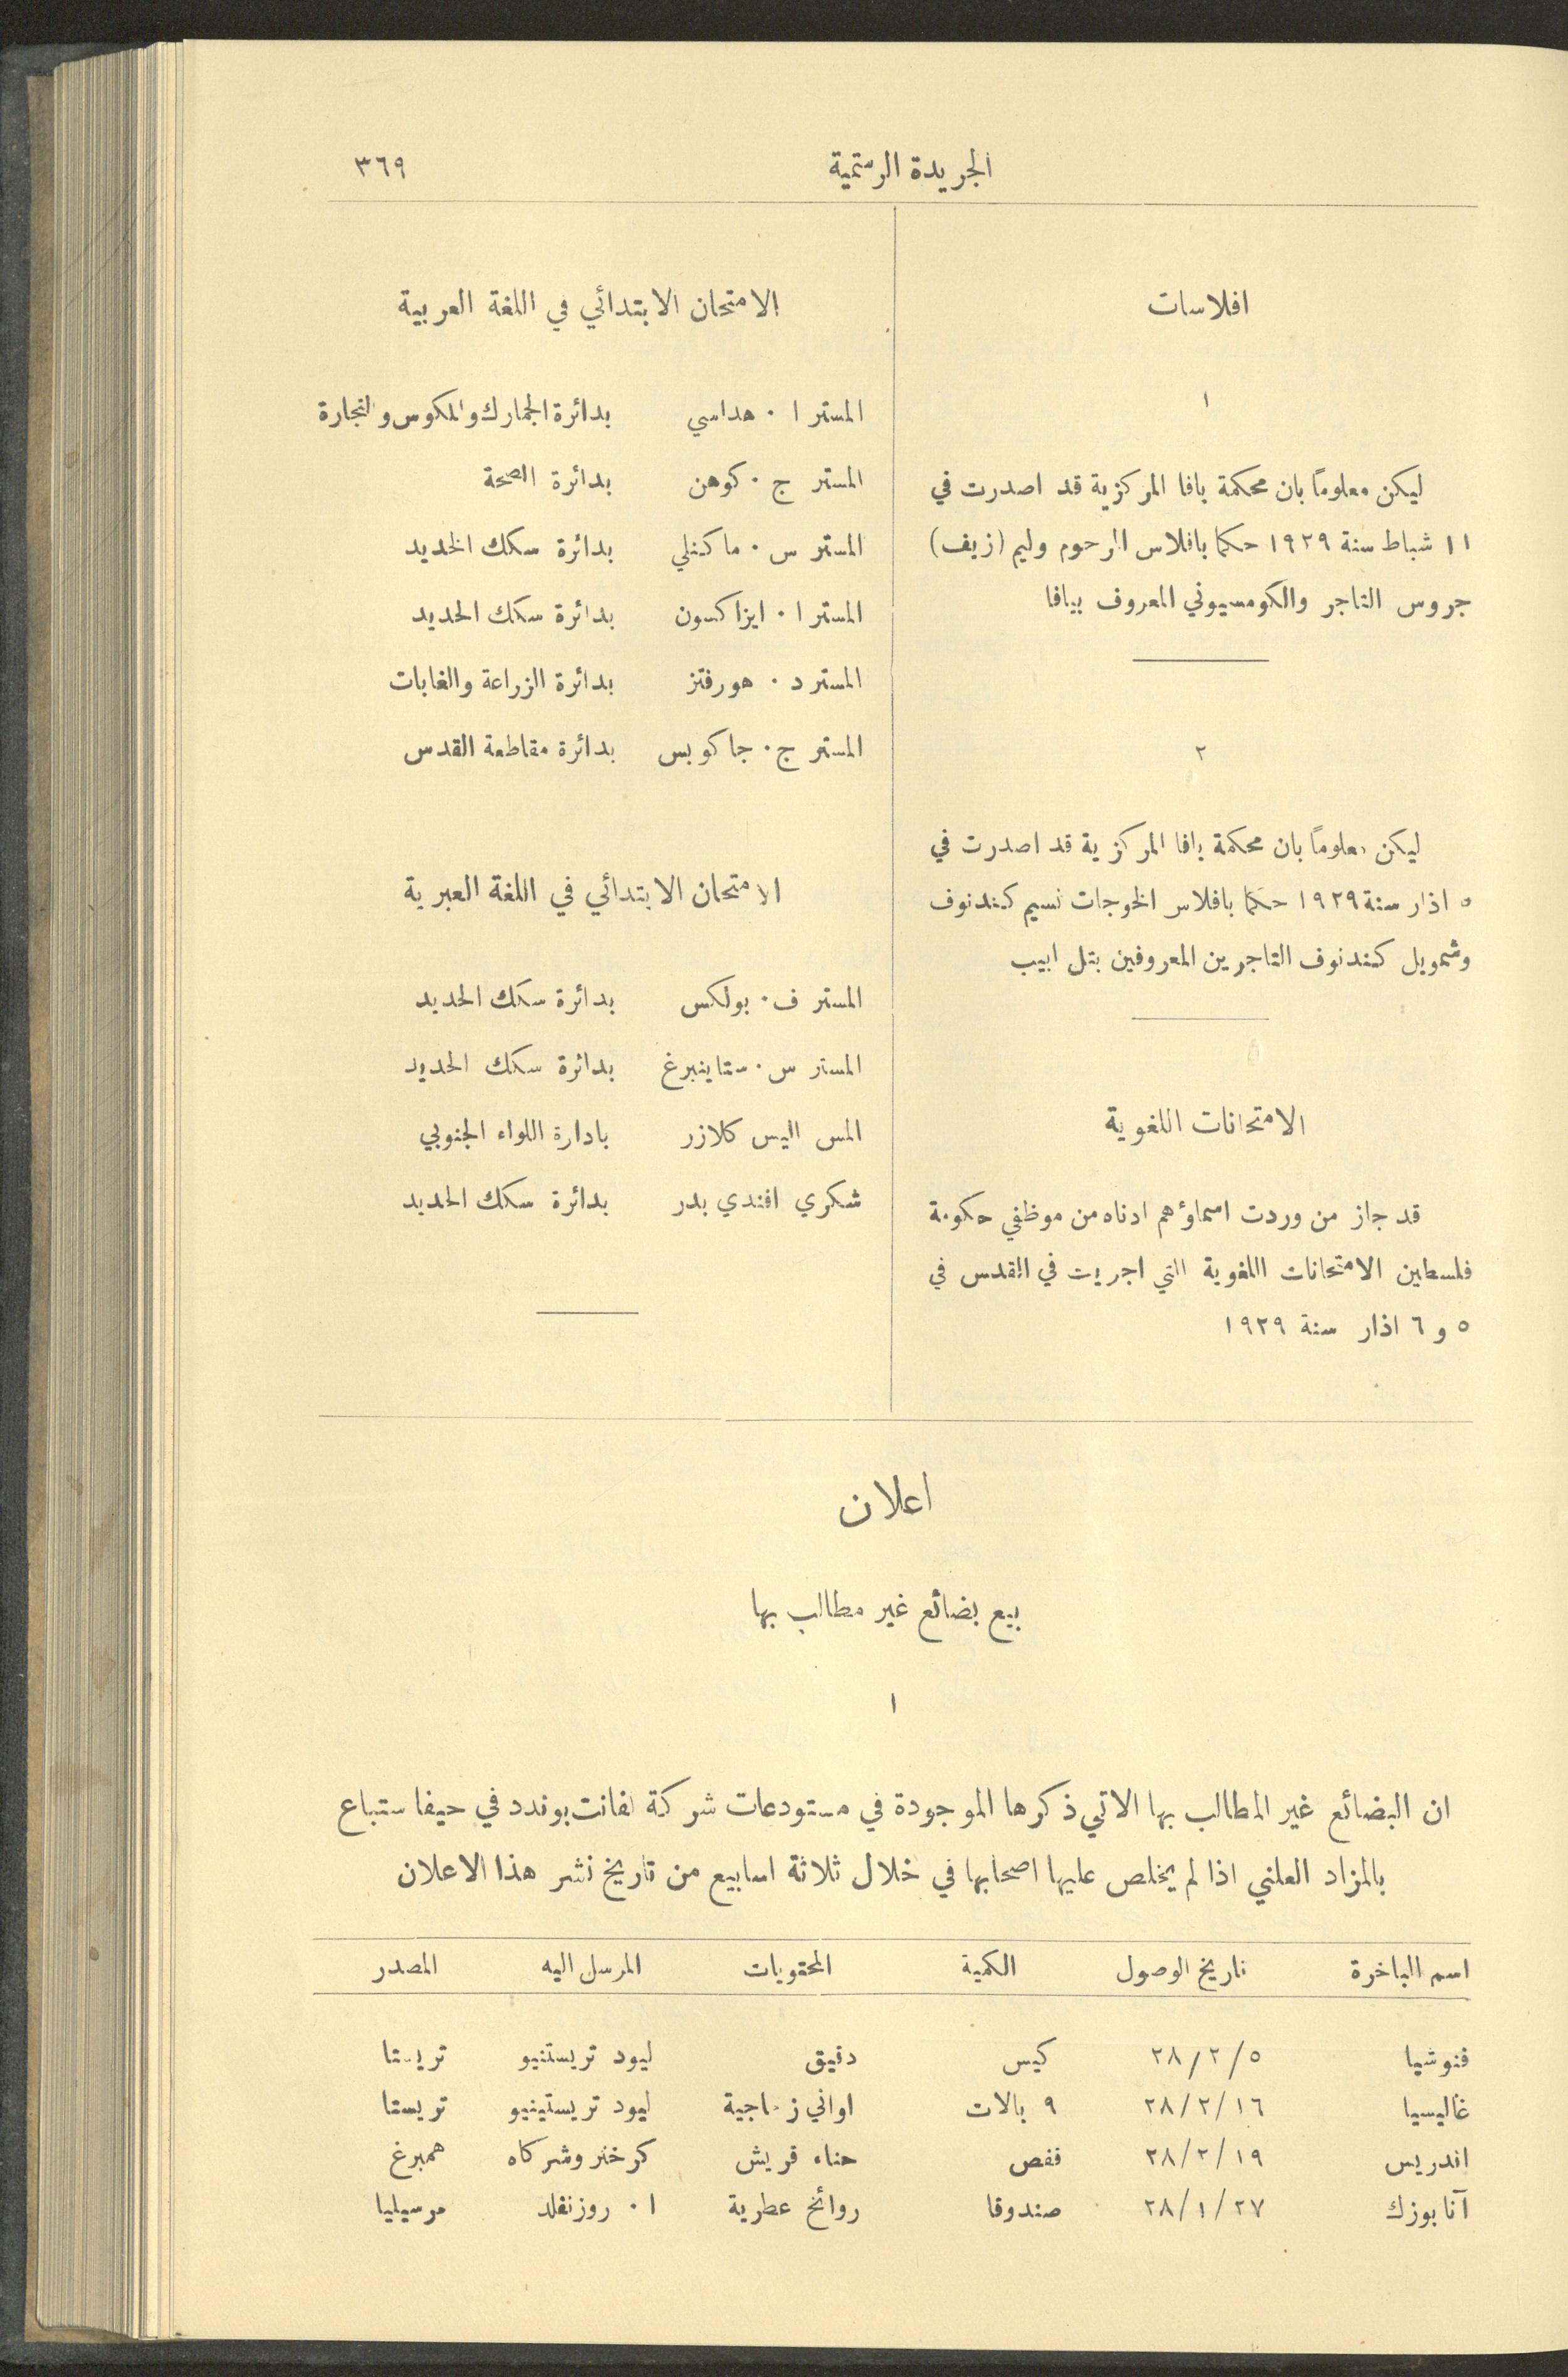 الجريدة الرسمية
٣٦٩
افلاسات
١
ليكن معلوماً بان محكمة يافا المركزية قد اصدرت في
١١ شباط سنة ١٩٢٩ حكما بافلاس المرحوم وليم (زيف)
جروس التاجر والكومسيوني المعروف بيافا
٢
ليكن معلوماً بان محكمة يافا المركزية قد اصدرت في
٥ اذار سنة ١٩٢٩ حكما بافلاس الخوجات نسيم كندنوف
وشمويل كندنوف التاجرين المعروفين بتل ابيب
الامتحانات اللغوية
قد جاز من وردت اسماؤهم ادناه من موظفي حكومة
فلسطين الامتحانات اللغوية التي اجريت في القدس في
٥ و ٦ اذار سنة ١٩٢٩
الامتحان الابتدائي في اللغة العربية
المستر ا . هداسي بدائرة الجمارك والمكوس والتجارة
المستر ج . كوهن بدائرة الصحة
المستر س . ماكنلي بدائرة سكك الحديد
المستر ا . ايزاكسون بدائرة سكك الحديد
المستر د . هورفتز بدائرة الزراعة والغابات
المستر ج . جاكوبس بدائرة مقاطعة القدس
الامتحان الابتدائي في اللغة العبرية
المستر ف . بولكس بدائرة سكك الحديد
المستر س . ستاينبرغ بدائرة سكك الحديد
المس اليس كلازر بادارة اللواء الجنوبي
شكري افندي بدر بدائرة سكك الحديد
اعلان
بيع بضائع غير مطالب بها
١
ان البضائع غير المطالب بها الاتي ذكرها الموجودة في مستودعات شركة لفانت بوندد في حيفا ستباع
بالمزاد العلني اذا لم يخلص عليها اصحابها في خلال ثلاثة اسابيع من تاريخ نشر هذا الاعلان
اسم الباخرة تاريخ الوصول الكمية المحتويات المرسل اليه المصدر
فنوشيا ٢٨/٢/٥ كيس دقيق ليود تريستنيو تريستا
غاليسيا ٢٨/٢/١٦ ٩ بالات اواني زجاجية ليود تريستينيو تريستا
اندريس ٢٨/٢/١٩ قفص حناء قريش كرخنر وشركاه همبرغ
آنا بوزك ٢٨/١/٢٧ صندوقا روائح عطرية ا . روزنفلد مرسيليا